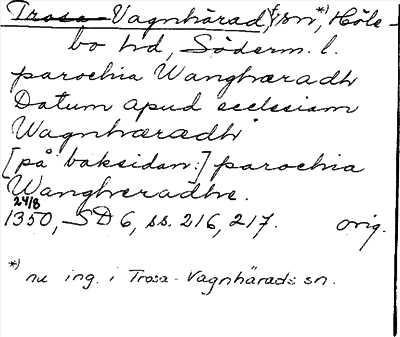 Trosa-Vagnhärad, sn *), Höle-
bo hd, Söderm. l.
parochia Wanghæradh
Datum apud ecclesiam
Wagnhæradh
[på baksidan:] parochia
Wangheradhe.
24/8
1350, SD 6, ss. 216, 217. orig.
*) nu ing. i Trosa-Vagnhärads sn.